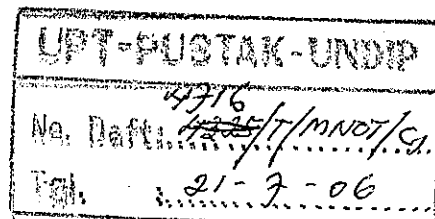 UPT-PUSTAK-UNDIP
4716
No. Daft: 4225/T/MNOT/C1
Tgl. : 21-7-06